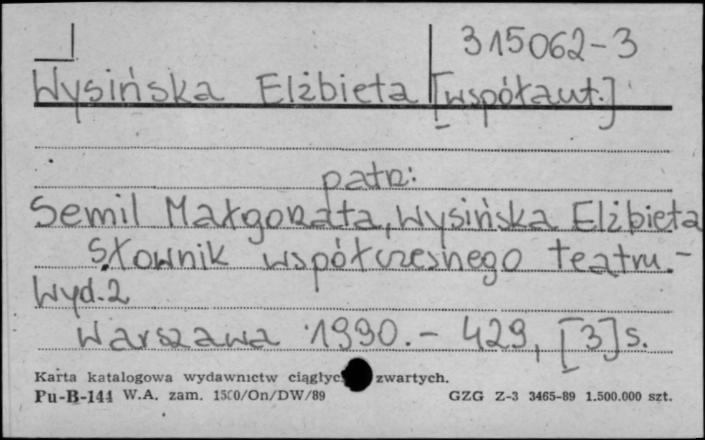 315062-3
Wysińska Elżbieta [współaut.]
patrz:
Semil Małgorzata, Wysińska Elżbieta
Słownik współczesnego teatru.-
Wyd. 2
Warszawa 1990.- 429, [3] s.
Karta katalogowa wydawnictw zwartych.
Pu-B-144 W.A. zam. 1500/On/DW/89 GZG Z-3 3465-89 1.500.000 szt.